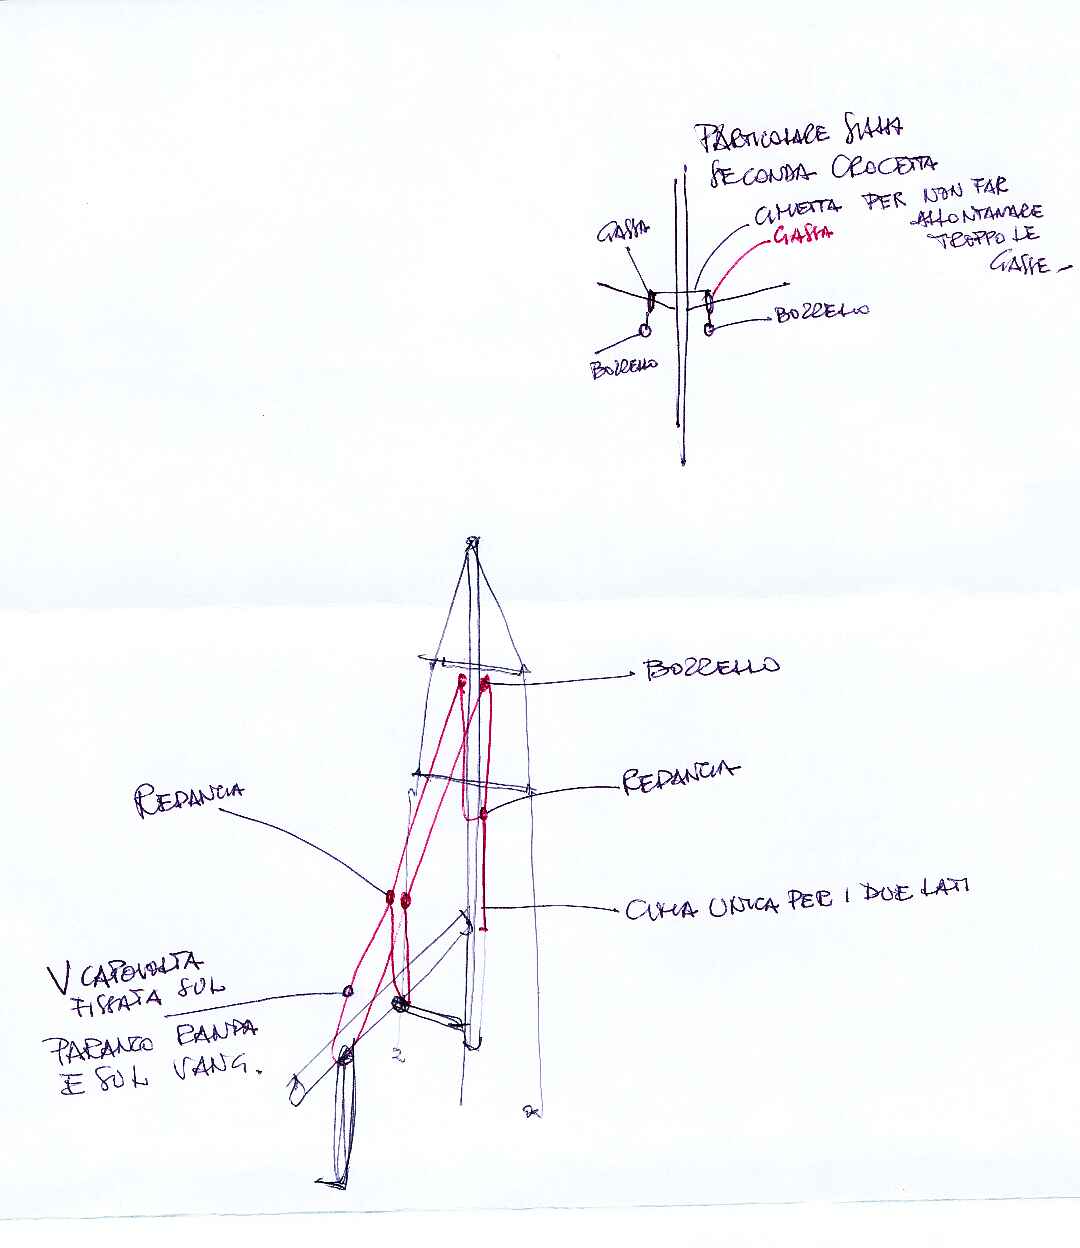 PARTICOLARE SULLA
SECONDA CROCETTA
CIMETTA PER NON FAR
ALLONTANARE
TROPPO LE
GASSE
GASSA
GASSA
BOZZELLO
BOZZELLO
BOZZELLO
REDANCIA
REDANCIA
CIMA UNICA PER I DUE LATI
V CAPOVOLTA
FISSATA SUL
PARANCO RANDA
E SUL VANG.
2